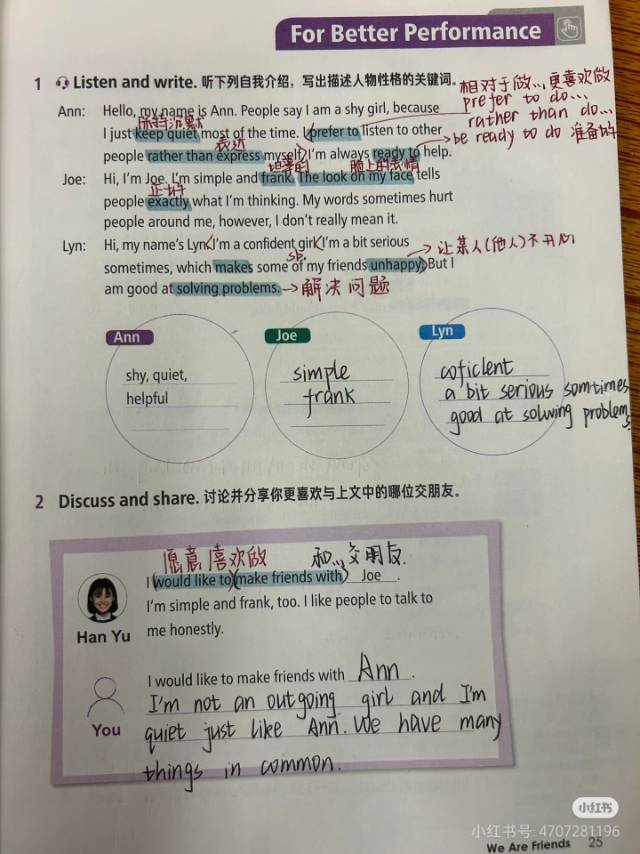 For Better Performance
1 Listen and write. 听下列自我介绍，写出描述人物性格的关键词。
相对于做...,更喜欢做
prefer to do...
rather than do...
be ready to do 准备好
Ann: Hello, my name is Ann. People say I am a shy girl, because
保持沉默
I just keep quiet most of the time. I prefer to listen to other
表达
people rather than express myself. I'm always ready to help.
坦率的 脸上的表情
Joe: Hi, I'm Joe. I'm simple and frank. The look on my face tells
正好
people exactly what I'm thinking. My words sometimes hurt
people around me, however, I don't really mean it.
Lyn: Hi, my name's Lyn. I'm a confident girl. I'm a bit serious
sb.
→让某人(他人)不开心
sometimes, which makes some of my friends unhappy. But I
am good at solving problems. →解决问题
Ann Joe Lyn
shy, quiet,
helpful
simple
frank
coficlent
a bit serious somtimes
good at solving problems
2 Discuss and share. 讨论并分享你更喜欢与上文中的哪位交朋友。
愿意/喜欢做 和...交朋友.
I would like to make friends with Joe.
I'm simple and frank, too. I like people to talk to
me honestly.
Han Yu
I would like to make friends with Ann.
I'm not an outgoing girl and I'm
quiet just like Ann. We have many
things in common.
You
小红书
小红书号: 4707281196
We Are Friends 25